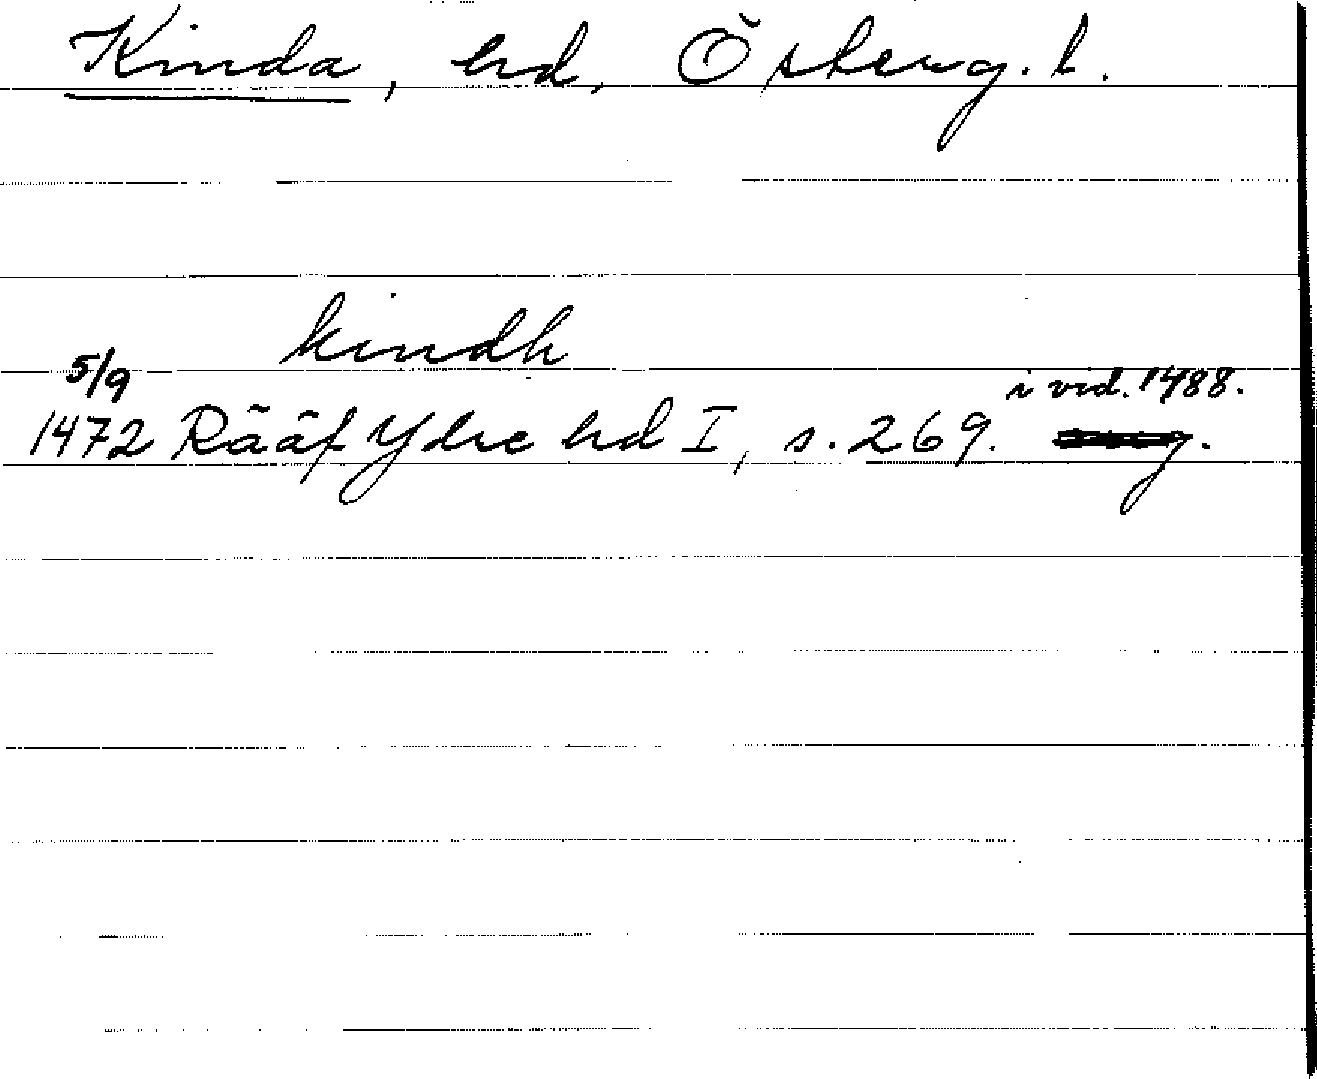 Kinda, hd, Österg. l.
kindh
5/9 i vid. 1488.
1472 Rääf Ydre hd I, s. 269.